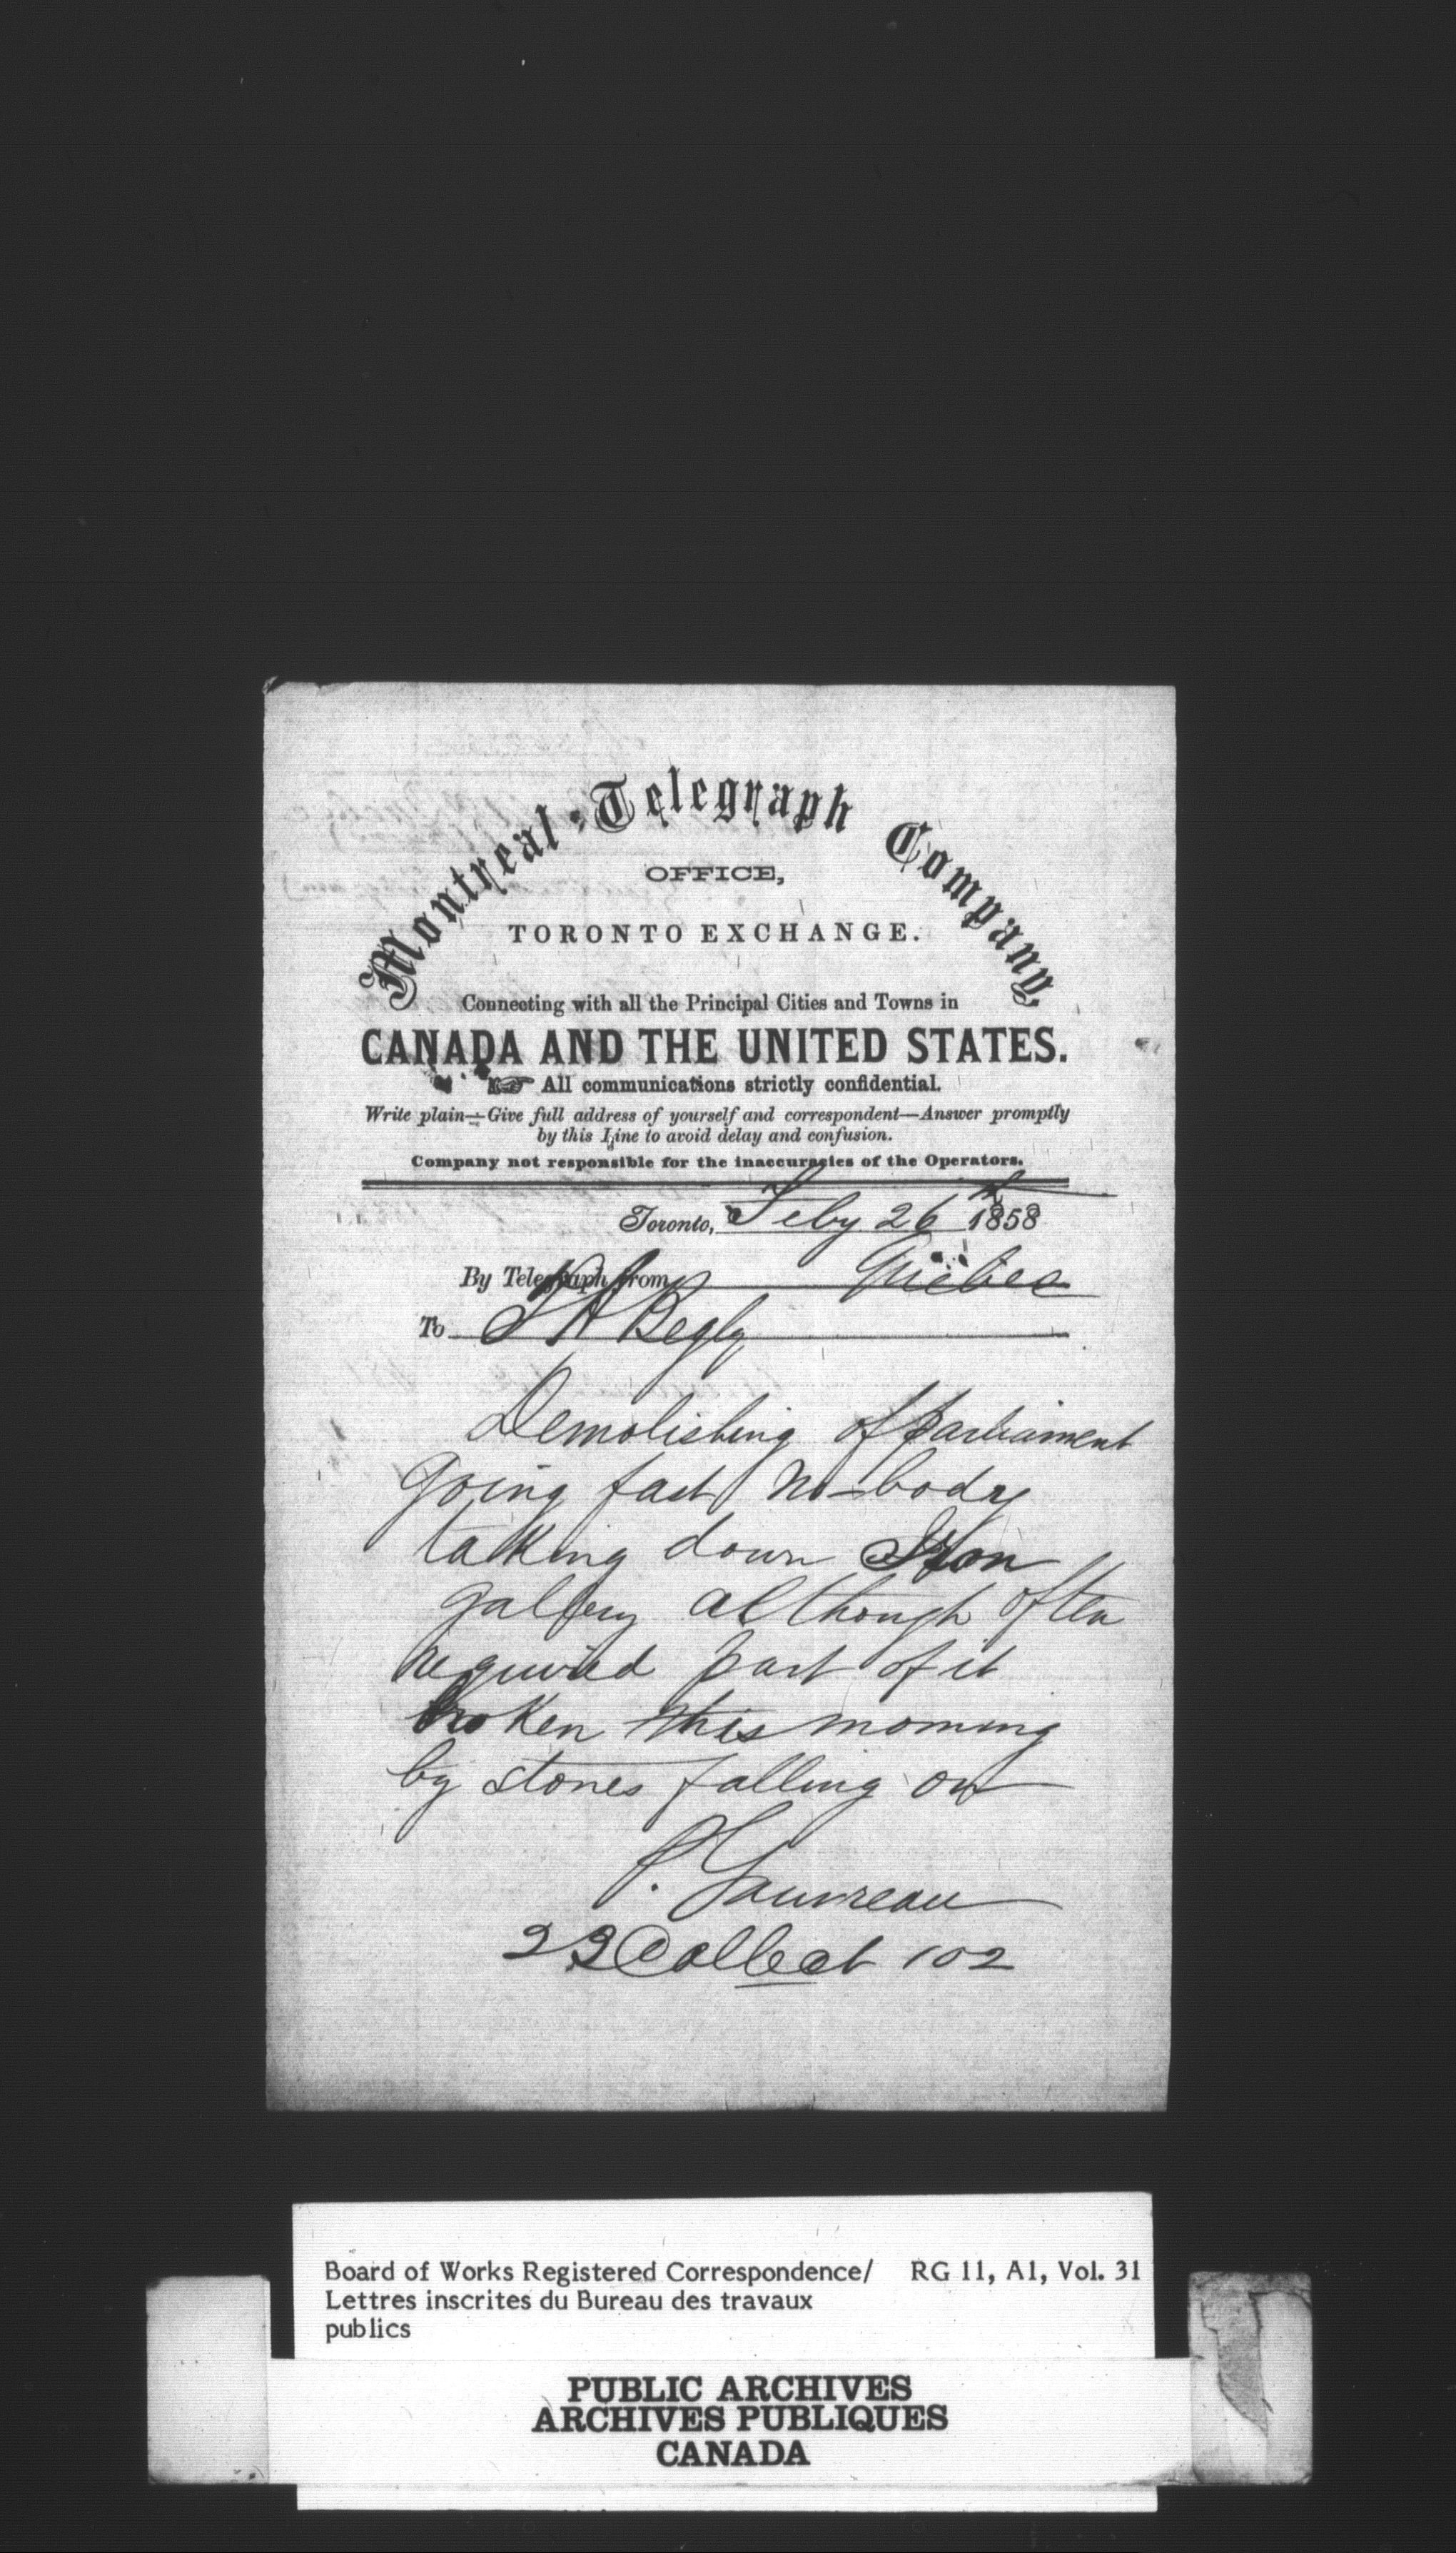 Montreal Telegraph Company
OFFICE,
TORONTO EXCHANGE.
Connecting with all the Principal Cities and Towns in
CANADA AND THE UNITED STATES.
☞ All communications strictly confidential.
Write plain—Give full address of yourself and correspondent—Answer promptly
by this Line to avoid delay and confusion.
Company not responsible for the inaccuracies of the Operators.
Toronto, Feby 26th 1858
By Telegraph from Quebec
To T A Begly
Demolishing of parliament
going fast No-body
taking down Iron
gallery although often
required part of it
broken this morning
by stones falling on
P. Gauvreau
23 Collect 102
Board of Works Registered Correspondence/ RG 11, A1, Vol. 31
Lettres inscrites du Bureau des travaux
publics
PUBLIC ARCHIVES
ARCHIVES PUBLIQUES
CANADA